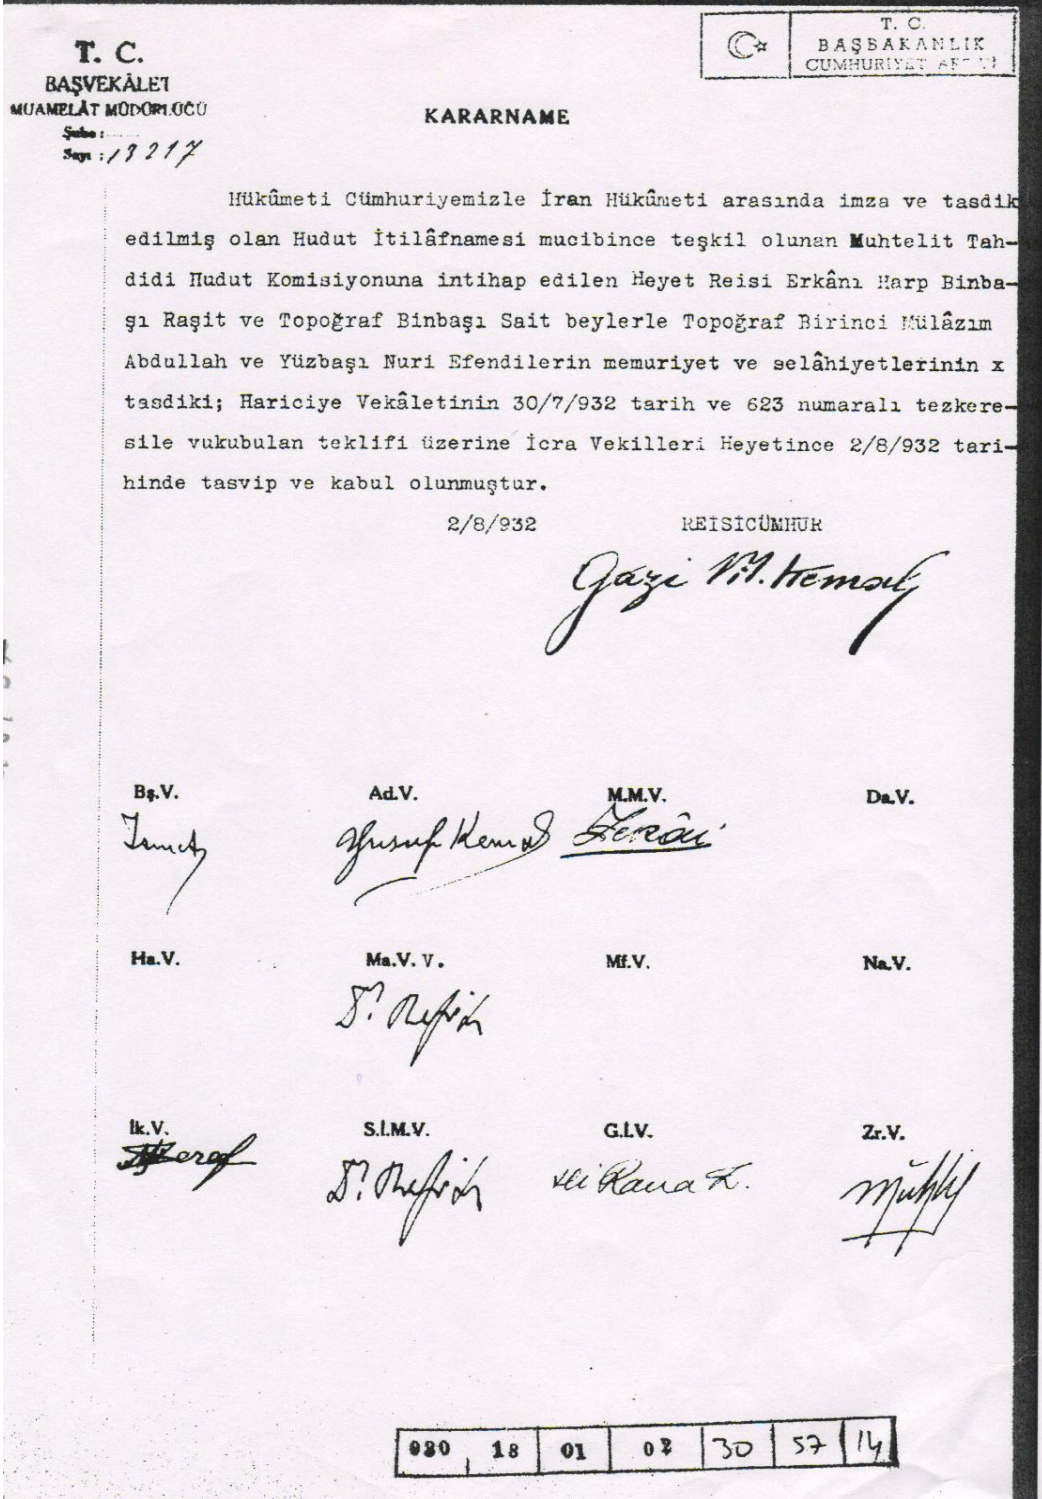 T. C.
BAŞVEKÂLET
MUAMELÂT MÜDÜRLÜĞÜ
Şube :
Sayı : 13217
T. C.
BAŞBAKANLIK
CUMHURİYET
KARARNAME
Hükûmeti Cümhuriyemizle İran Hükûmeti arasında imza ve tasdik
edilmiş olan Hudut İtilâfnamesi mucibince teşkil olunan Muhtelit Tah-
didi Hudut Komisiyonuna intihap edilen Heyet Reisi Erkânı Harp Binba-
şı Raşit ve Topoğraf Binbaşı Sait beylerle Topoğraf Birinci Mülâzım
Abdullah ve Yüzbaşı Nuri Efendilerin memuriyet ve selâhiyetlerinin x
tasdiki; Hariciye Vekâletinin 30/7/932 tarih ve 623 numaralı tezkere-
sile vukubulan teklifi üzerine İcra Vekilleri Heyetince 2/8/932 tari-
hinde tasvip ve kabul olunmuştur.
2/8/932 REİSİCÜMHUR
Gazi M. Kemal
Bş.V. Ad.V. M.M.V. Da.V.
İsmet Yusuf Kemal Zekâi
Ha.V. Ma.V. V. Mf.V. Na.V.
Dr. Refik
İk.V. S.İ.M.V. G.İ.V. Zr.V.
M. Şeref Dr. Refik Ali Rana T. Muhlis
030 18 01 02 30 57 14